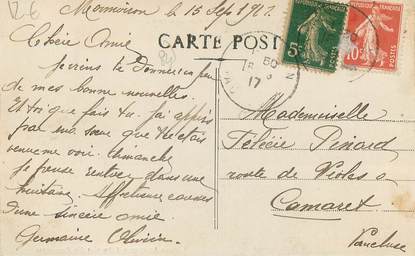 Mormoiron le 15 Sept 1917.
Chère Amie
CARTE POSTALE
Je viens te donner un peu
de mes bonne nouvelles.
Et toi que fais tu. J'ai appris
par ma sœur que tu étais
venue me voir. Dimanche
je pense rentrer dans une
huitaine. Affectueuse caresses
d'une sincère amie.
Germaine
Mademoiselle
Félécie Pinard
route de Violès
Camaret
Vaucluse
5c
10c
POSTES
17